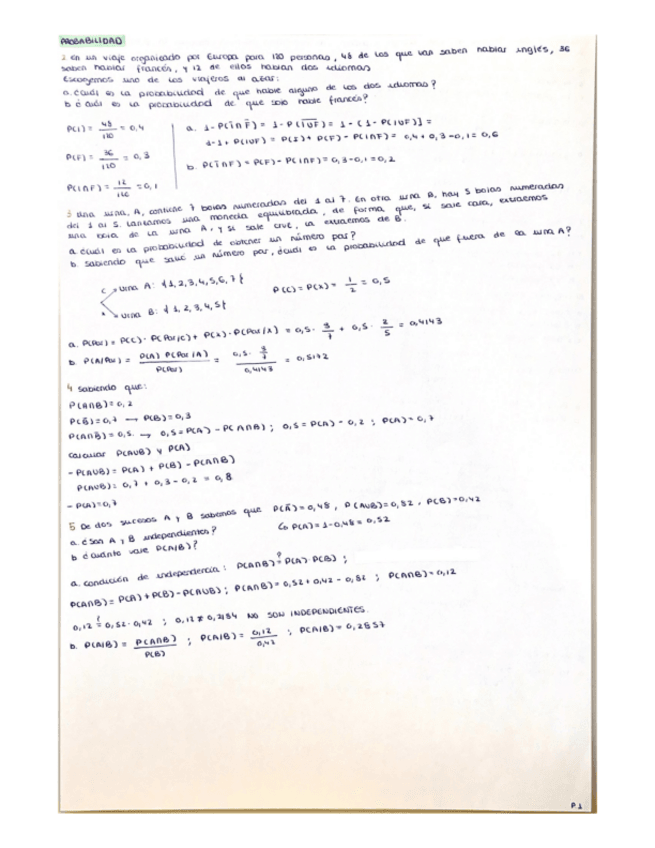 PROBABILIDAD
2 En un viaje organizado por Europa para 120 personas, 48 de los que van saben hablar inglés, 36
saben hablar francés, y 12 de ellos hablan dos idiomas
Escogemos uno de los viajeros al azar:
a. ¿Cuál es la probabilidad de que hable alguno de los dos idiomas?
b. ¿Cuál es la probabilidad de que solo hable francés?
P(I) = 48/120 = 0,4
P(F) = 36/120 = 0,3
P(I∩F) = 12/120 = 0,1
a. 1-P(Ī∩F̄) = 1-P(I̅U̅F̅) = 1-(1-P(IUF)] =
1-1+P(IUF) = P(I)+P(F)-P(I∩F) = 0,4+0,3-0,1 = 0,6
b. P(Ī∩F) = P(F)-P(I∩F) = 0,3-0,1 = 0,2
3 Una urna, A, contiene 7 bolas numeradas del 1 al 7. En otra urna B, hay 5 bolas numeradas
del 1 al 5. Lanzamos una moneda equilibrada, de forma que, si sale cara, extraemos
una bola de la urna A, y si sale cruz, la extraemos de B.
a. ¿Cuál es la probabilidad de obtener un número par?
b. Sabiendo que salió un número par, ¿cuál es la probabilidad de que fuera de la urna A?
C → Urna A: {1,2,3,4,5,6,7}
x → Urna B: {1,2,3,4,5}
P(C) = P(X) = 1/2 = 0,5
a. P(Par) = P(C)·P(Par/C) + P(X)·P(Par/X) = 0,5·3/7 + 0,5·2/5 = 0,4143
b. P(A/Par) = P(A)·P(Par/A)/P(Par) = 0,5·3/7/0,4143 = 0,5172
4 Sabiendo que:
P(A∩B) = 0,2
P(B̄) = 0,7 → P(B) = 0,3
P(A∩B̄) = 0,5. → 0,5 = P(A) - P(A∩B); 0,5 = P(A) - 0,2; P(A) = 0,7
Calcular P(AUB) y P(A)
- P(AUB) = P(A) + P(B) - P(A∩B)
P(AUB) = 0,7 + 0,3 - 0,2 = 0,8
- P(A) = 0,7
5 De dos sucesos A y B sabemos que P(Ā) = 0,48, P(AUB) = 0,82, P(B) = 0,42
↳ P(A) = 1-0,48 = 0,52
a. ¿Son A y B independientes?
b. ¿Cuánto vale P(A/B)?
a. Condición de independencia: P(A∩B) ?= P(A)·P(B);
P(A∩B) = P(A)+P(B)-P(AUB); P(A∩B) = 0,52+0,42-0,82; P(A∩B) = 0,12
0,12 ?= 0,52·0,42; 0,12 ≠ 0,2184 NO SON INDEPENDIENTES.
b. P(A/B) = P(A∩B)/P(B); P(A/B) = 0,12/0,42; P(A/B) = 0,2857
P.1